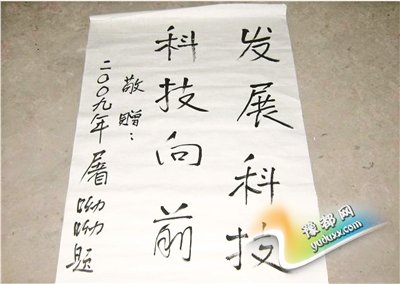 发展科技
科技向前
敬赠：
二〇〇九年屠呦呦题
豫都网
yuduxx.com